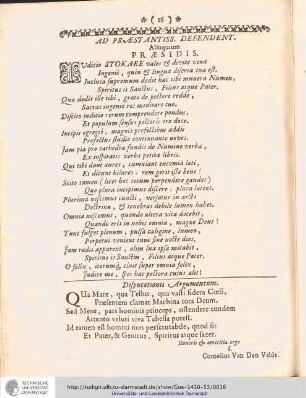 * (16) *
AD PRÆSTANTISS. DEFENDENT.
Alloquium
PRÆSIDIS.
Judicio STOKARE vales & divite vena
Ingenii, quin & lingua diserta tua est.
Inclita supremum dedit hæc tibi munera Numen,
Spiritus is Sanctus, Filius atque Pater.
Qua dedit ille tibi, grato de pectore reddis,
Sacras ingenio res meditare tuo.
Disciis judicio rerum comprendere pondus,
Et populum sensus pectoris ore doces.
Incipis egregiè, magnis profectibus addis
Profectus studio continuante novos.
Jam pia pro cathedra fundis de Numine verba,
Ex inspiratis verba petita libris.
Qui tibi dant aures, cumulant encomia lati,
Et dicunt hilares: rem gerit iste bene!
Scito tamen (licet hoc totum perpendere gaudes)
Quo plura incipimus discere: plura latent.
Plurima nescimus cuncti, versatur in arcto
Doctrina, & tenebras debile lumen habet.
Omnia noscemus, quando altera vita docebit,
Quando eris in nobis omnia, magne Deus!
Tunc fulget plenum, pulsa caligine, lumen,
Perpetuò venient tunc sine nocte dies,
Jam radio apparent, olim lux ipsa micabit,
Spiritus is Sanctus, Filius atque Pater.
O felix, iterumq́; soror super omnia felix,
Judice me, spes hæc pectora cujus alit!
Disputationis Argumentum.
Quà Mare, qua Tellus, qua vasti sidera Coeli,
Præsentem clamat Machina tota Deum.
Sed Mens, pars hominis princeps, ostendere eundem
Attento veluti vera Tabella potest.
Id tamen est homini non perscrutabile, quod sit
Et Pater, & Genitus, Spiritus atque sacer.
Honoris & amicitiæ ergo
f.
Cornelius Van Den Velde.
TECHNISCHE
UNIVERSITÄT
DARMSTADT
http://tudigit.ulb.tu-darmstadt.de/show/Gue-1430-53/0016
Universitäts- und Landesbibliothek Darmstadt